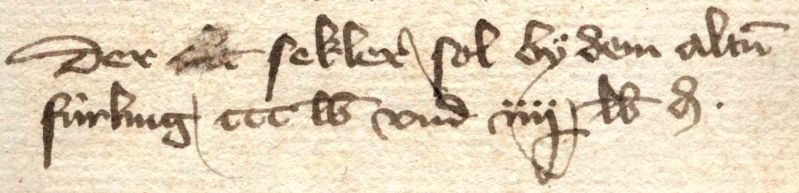 Der sekler sol by dem altn̄
fürling ccc lb vnd iiij lb d.